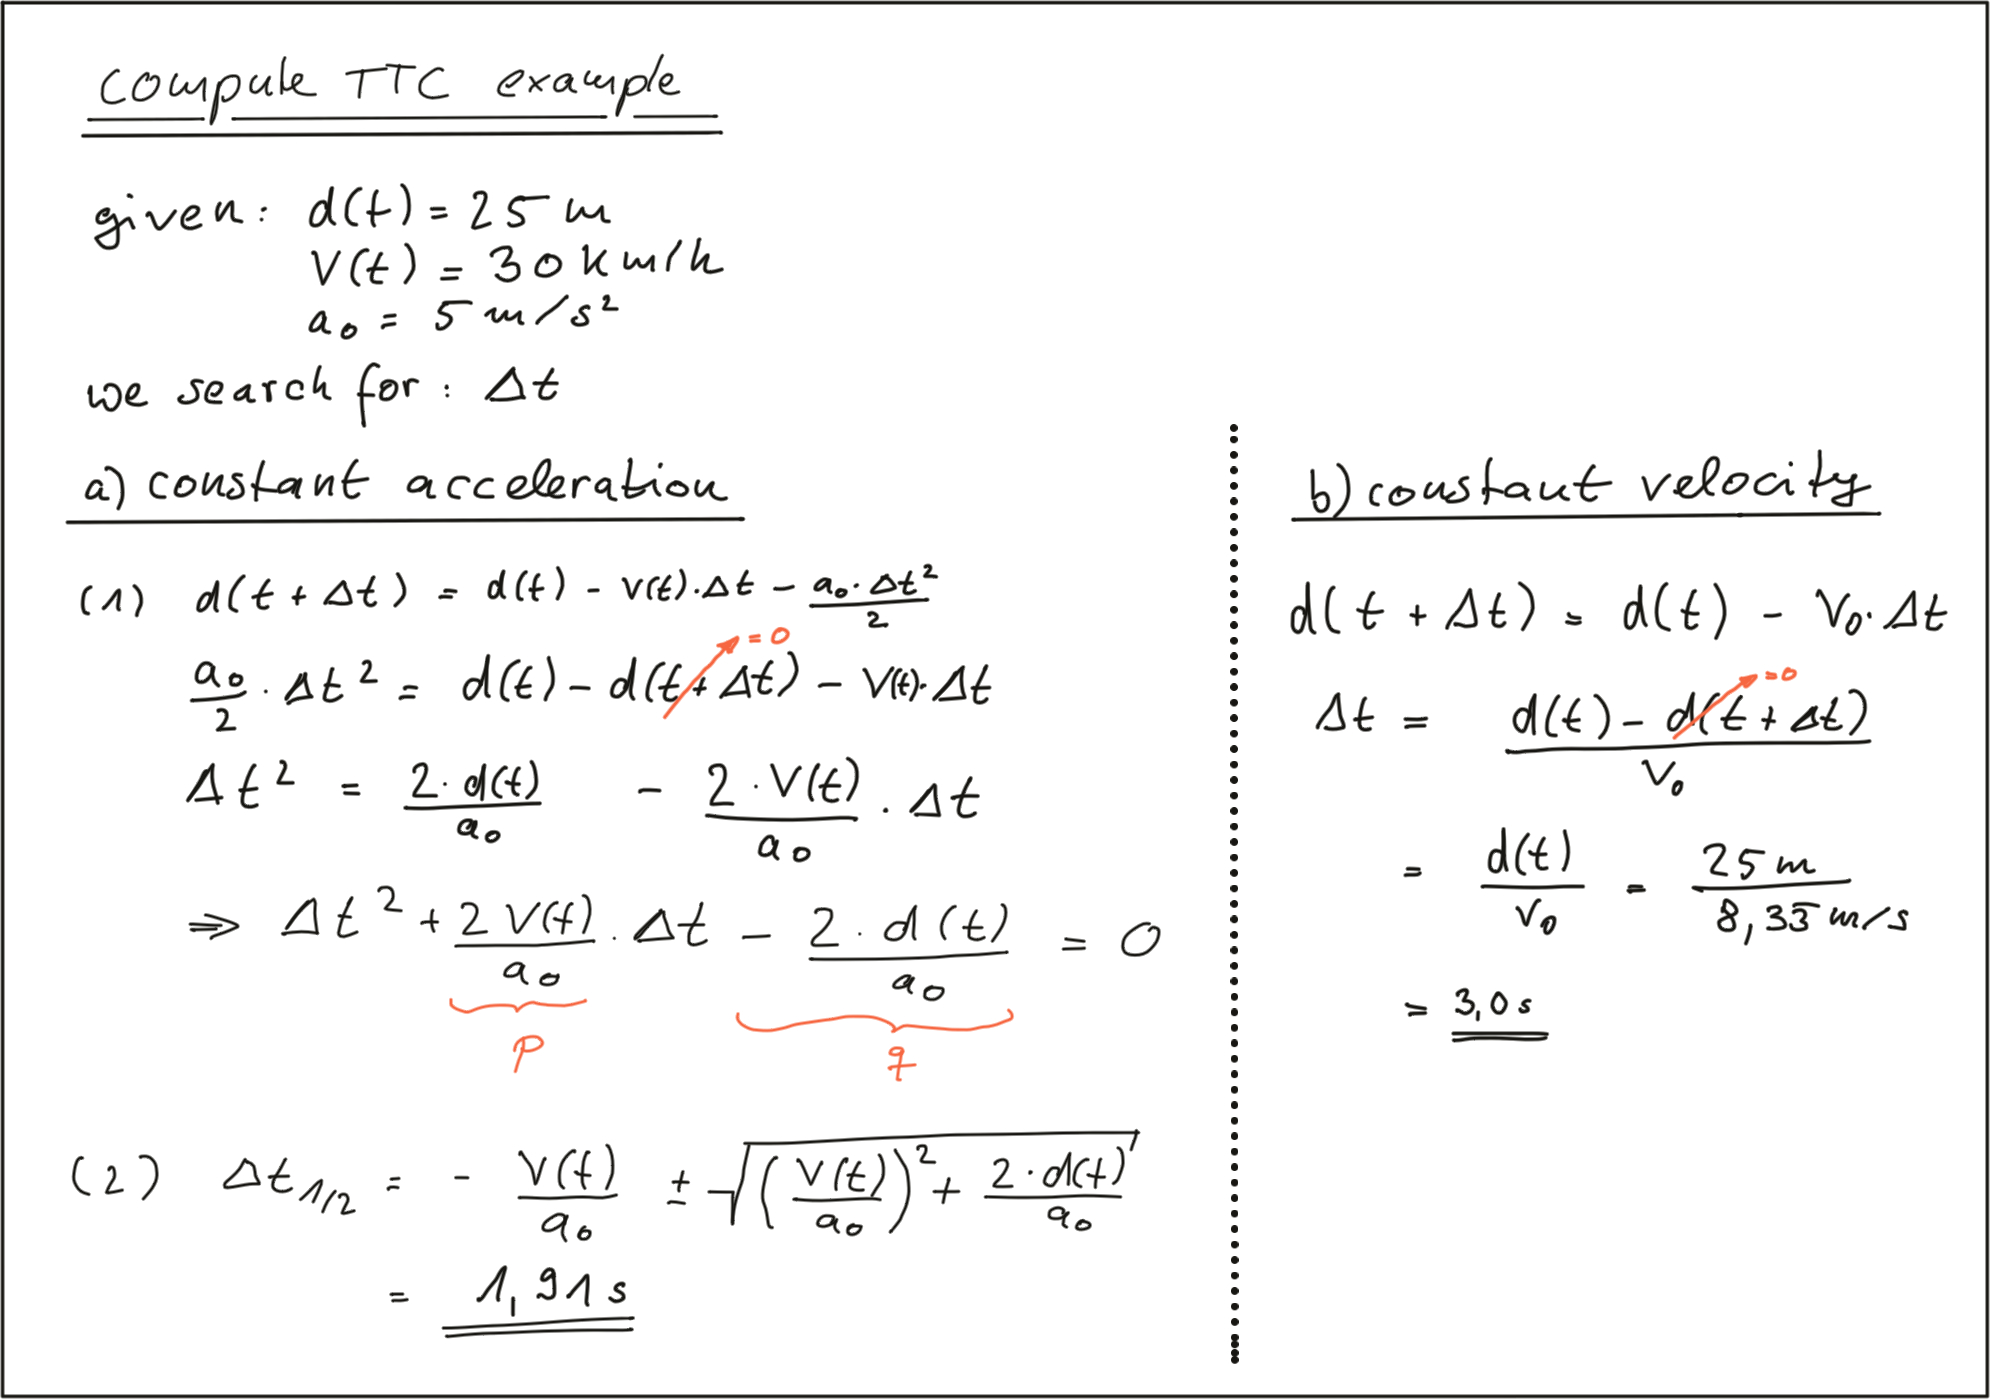 compute TTC example
given: d(t) = 25 m
V(t) = 30 km/h
a₀ = 5 m/s²
we search for: Δt
a) constant acceleration
(1) d(t + Δt) = d(t) - v(t)·Δt - a₀·Δt²/2
a₀/2 · Δt² = d(t) - d(t + Δt) - V(t)·Δt
= 0
Δt² = 2·d(t)/a₀ - 2·V(t)/a₀ · Δt
⇒ Δt² + 2 V(t)/a₀ · Δt - 2·d(t)/a₀ = 0
p
q
(2) Δt₁/₂ = - V(t)/a₀ ± √((V(t)/a₀)² + 2·d(t)/a₀)
= 1,91 s
b) constant velocity
d(t + Δt) = d(t) - V₀·Δt
= 0
Δt = d(t) - d(t + Δt)/V₀
= d(t)/V₀ = 25 m/8,33 m/s
= 3,0 s